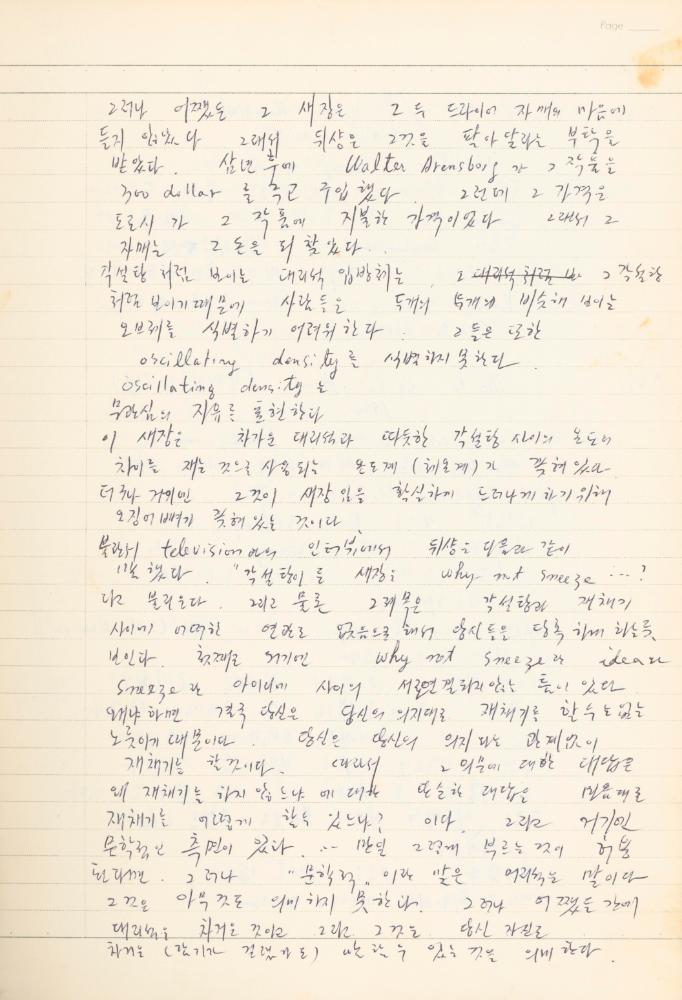 Page
그러나 어쨌든 그 새장은 그 두 드라이어 자매의 마음에
들지 않았다 그래서 뒤샹은 그것을 팔아달라는 부탁을
받았다. 삼년 후에 Walter Arensberg 가 그 작품을
300 dollar 를 주고 구입했다. 그런데 그 가격은
도로시 가 그 작품에 지불한 가격이었다 그래서 그
자매는 그 돈을 되찾았다.
각설탕 처럼 보이는 대리석 입방체는 그 대리석처럼 보 그 각설탕
처럼 보이기 때문에 사람들은 두개의 비슷해 보이는
오브제를 식별하기 어려워한다. 그들은 또한
oscillating density 를 식별하지 못한다.
oscillating density 는
무관심의 자유를 표현한다
이 새장은 차가운 대리석과 따뜻한 각설탕 사이의 온도의
차이를 재는 것으로 사용되는 온도계 (체온계)가 꽂혀있다.
더구나 거기엔 그것이 새장임을 확실하게 드러나게 하기 위해
오징어뼈가 꽂혀있는 것이다
불란서 television 과의 인터뷰에서 뒤샹은 다음과 같이
말했다. "각설탕이 든 새장은 why not sneeze ...?
라고 불리운다. 그리고 물론 그 제목은 각설탕과 재채기
사이에 어떠한 연관도 없음으로 해서 당신들을 당혹하게 하는듯
보인다. 첫째로 거기엔 why not sneeze 란 idea 와
sneeze 란 아이디에 사이의 서로 연결되지 않는 틈이 있다
왜냐하면 결국 당신은 당신의 의지대로 재채기를 할 수는 없는
노릇이기 때문이다. 당신은 당신의 의지와는 관계없이
재채기를 할것이다. 따라서 그 의문에 대한 대답은
왜 재채기를 하지 않느냐 에 대한 단순한 대답은 마음대로
재채기를 어떻게 할수 있느냐? 이다. 그리고 거기엔
문학적인 측면이 있다. ... 만일 그렇게 부르는 것이 허용
된다면. 그러나 "문학적" 이란 말은 어리석은 말이다
그것은 아무것도 의미하지 못한다. 그러나 어쨌든간에
대리석은 차거운 것이고 그리고 그것은 당신 자신도
차거운 (감기가 걸렸가도) 말할수 있는 것을 의미한다.